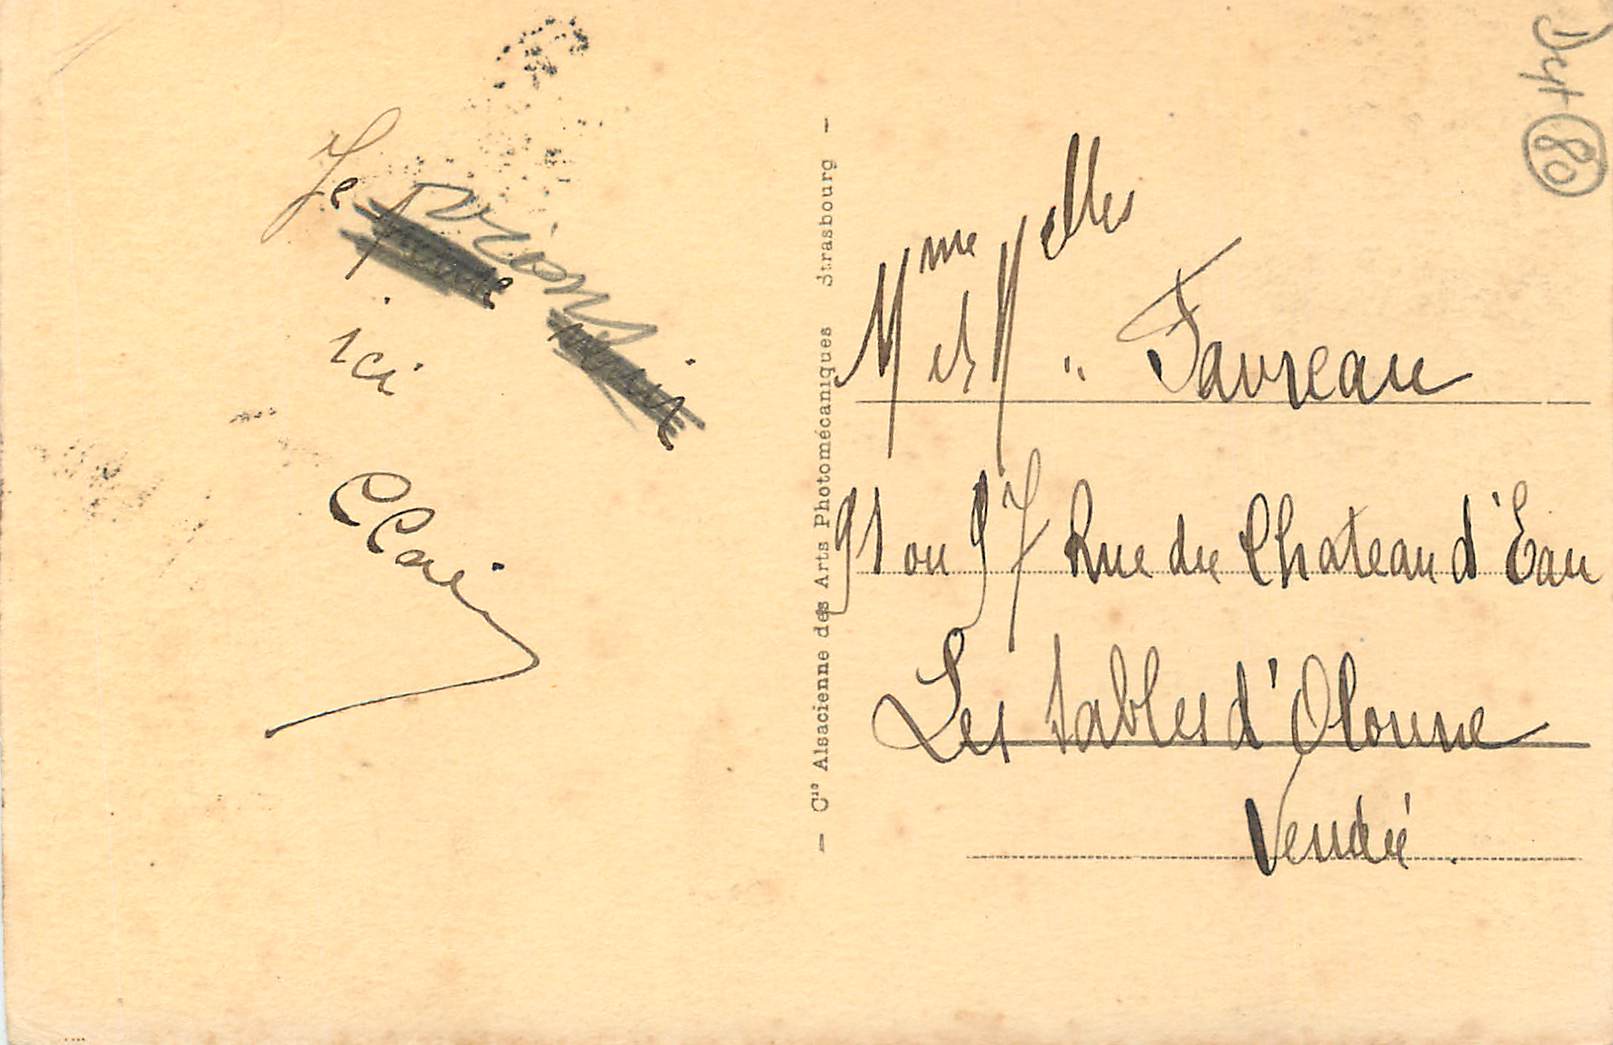 Je suis
ici
Clair
— Cie Alsacienne des Arts Photomécaniques Strasbourg —
Dept 80
Mme et Melles Favreau
91 ou 97 Rue du Chateau d'Eau
Les Sables d'Olonne
Vendée